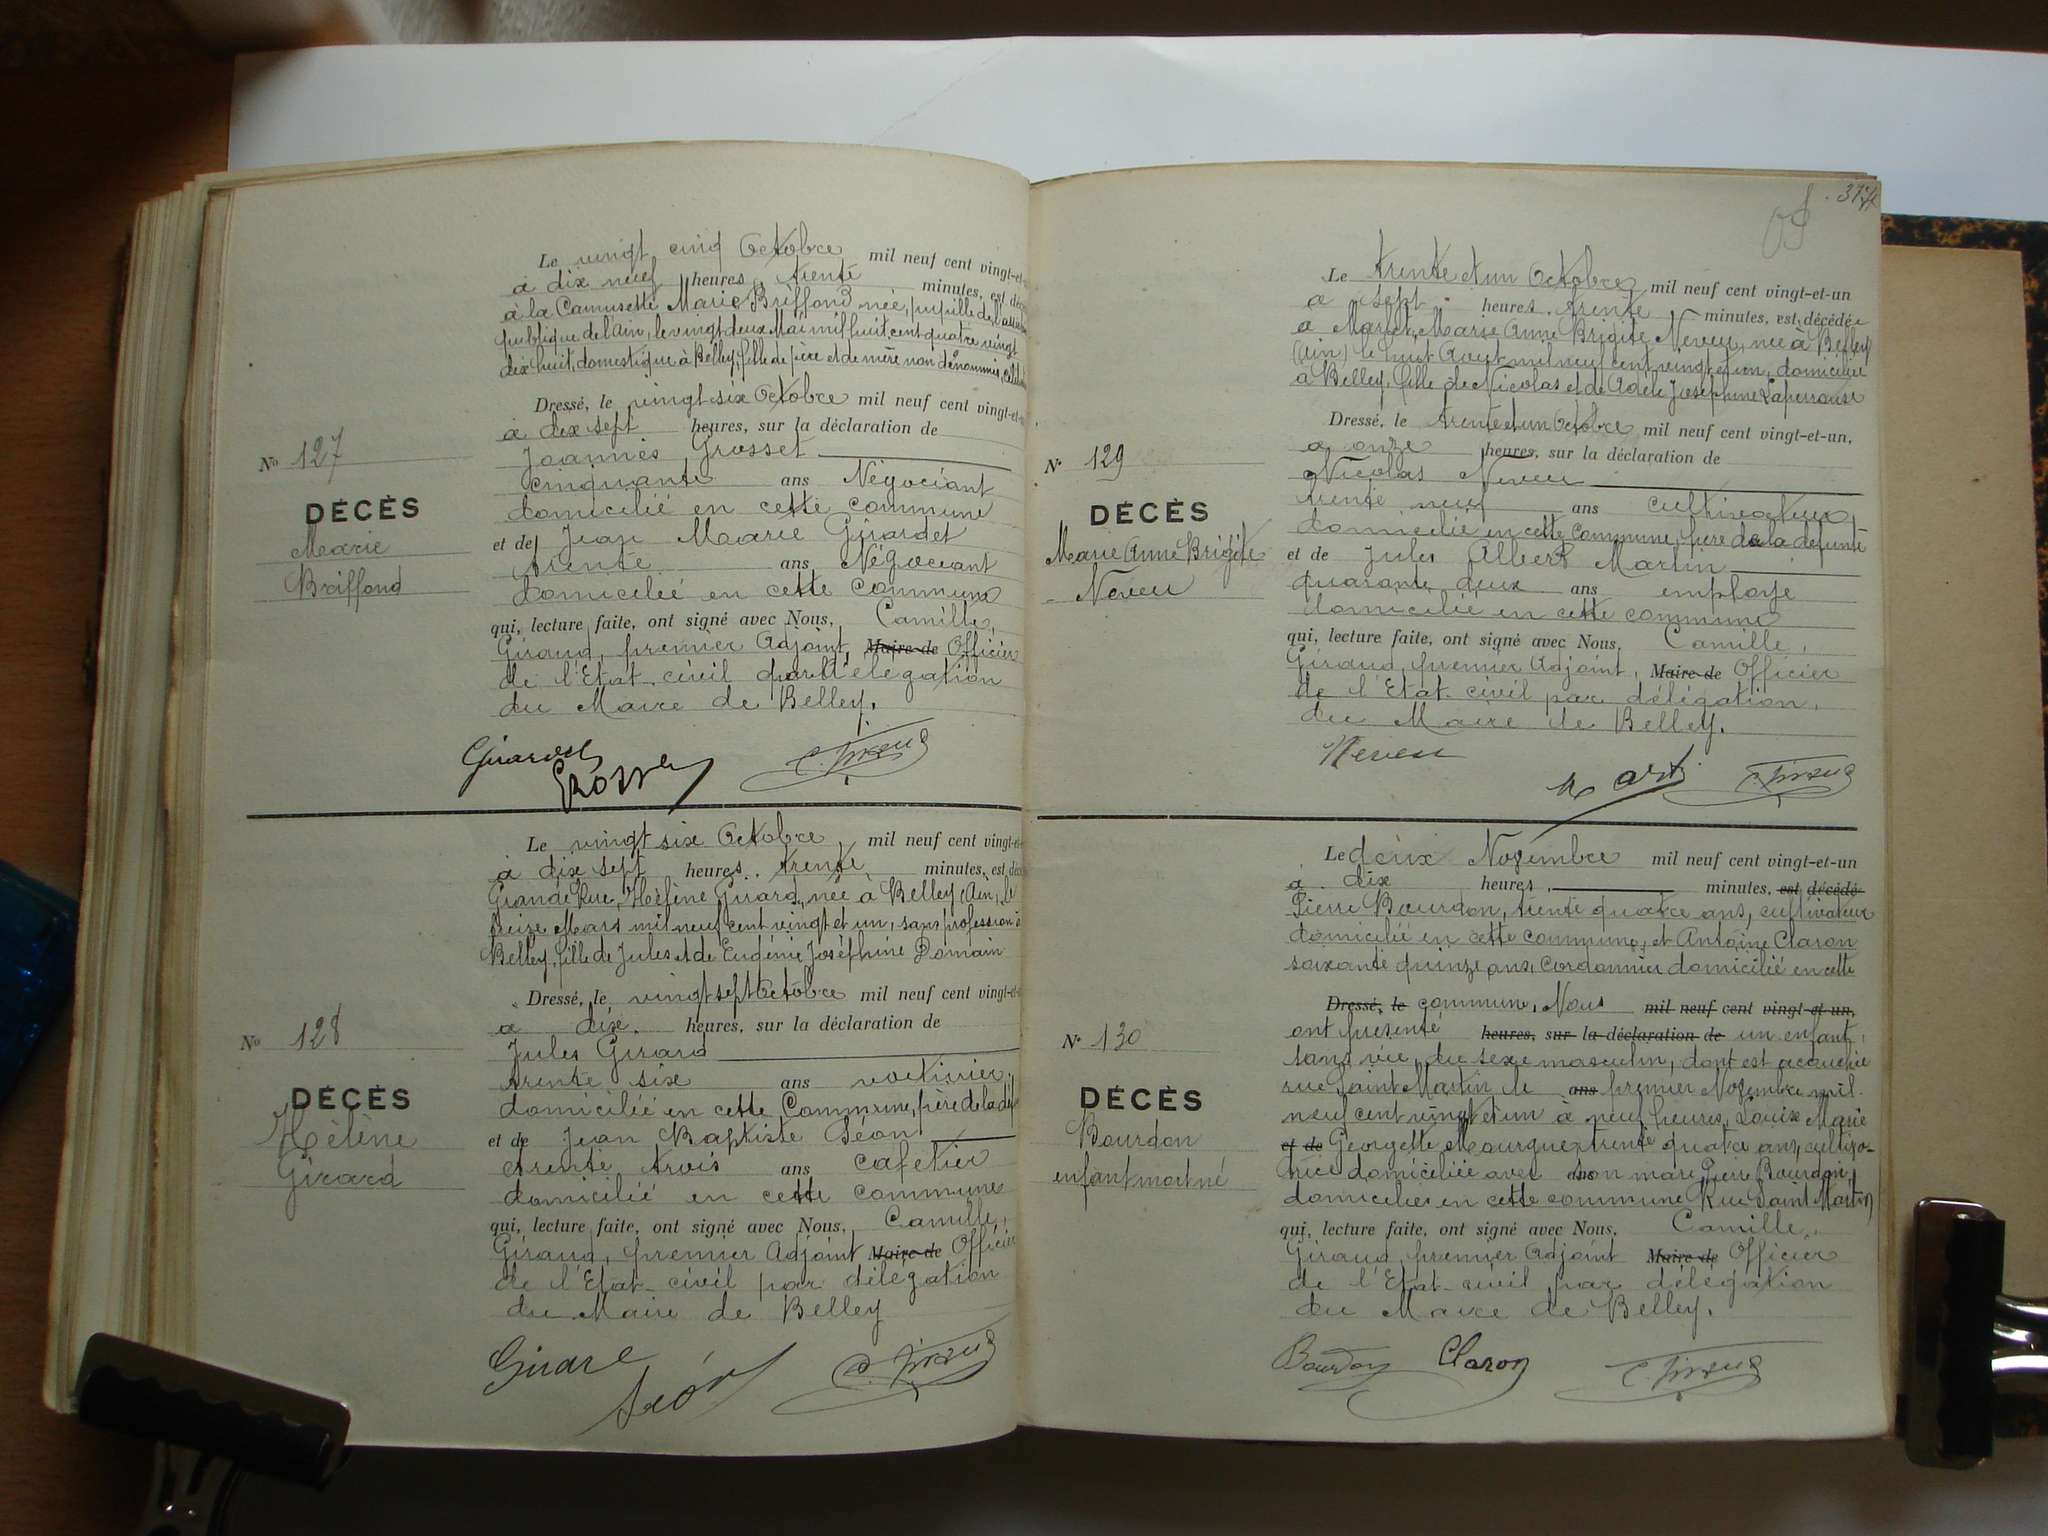 Le vingt cinq Octobre mil neuf cent vingt-et-
à dix neuf heures, trente minutes, est déc
à la Camusette Marie Briffond née, pupille de l'assis
publique de l'Ain, le vingt deux Mai mil huit cent quatre vingt
dix huit, domestique à Belley, fille de père et de mère non dénommés,
Dressé, le vingt six Octobre mil neuf cent vingt-et-
à dix sept heures, sur la déclaration de
Joannès Grosset
Cinquante ans Négociant
domicilié en cette commune
et de Jean Marie Girardet
trente ans Négociant
domicilié en cette commune
qui, lecture faite, ont signé avec Nous, Camille,
Giraud, premier Adjoint, Maire de Officier
de l'Etat civil par délégation
du Maire de Belley.
No 127
DÉCÈS
Marie
Briffond
Girardet
Grosset
C. Giraud
Le vingt six Octobre mil neuf cent vingt-et-
à dix sept heures, trente minutes, est déc
Grande Rue, Hélène Girard, née à Belley (Ain), le
seize Mars mil neuf cent vingt et un, sans profession à
Belley, fille de Jules et de Eugénie Joséphine Domain
Dressé, le vingt sept Octobre mil neuf cent vingt-et-
à dix heures, sur la déclaration de
Jules Girard
trente six ans voiturier
domicilié en cette Commune, père de la déf
et de Jean Baptiste Séon
trente trois ans cafetier
domicilié en cette commune
qui, lecture faite, ont signé avec Nous, Camille,
Giraud, premier Adjoint Maire de Officier
de l'Etat civil par délégation
du Maire de Belley
No 128
DÉCÈS
Hélène
Girard
Girard
Séon
C. Giraud
317
Le trente et un Octobre mil neuf cent vingt-et-un
à sept heures, trente minutes, est décédée
à Marie Anne Brigite Neveu, née à Belley
(Ain) le huit Août mil neuf cent vingt et un, domiciliée
à Belley, fille de Nicolas et de Adèle Joséphine Laperrouse
Dressé, le trente et un Octobre mil neuf cent vingt-et-un,
à onze heures, sur la déclaration de
Nicolas Neveu
trente neuf ans cultivateur
domicilié en cette commune, père de la défunte
et de Jules Albert Martin
quarante deux ans employé
domicilié en cette commune
qui, lecture faite, ont signé avec Nous, Camille,
Giraud, premier Adjoint, Maire de Officier
de l'Etat civil par délégation,
du Maire de Belley.
No 129
DÉCÈS
Marie Anne Brigite
Neveu
Neveu
C. Giraud
Le deux Novembre mil neuf cent vingt-et-un
à dix heures, minutes, est décédé
Pierre Bourdon, trente quatre ans, cultivateur
domicilié en cette commune, et Antoine Claron
soixante quinze ans, Cordonnier domicilié en cette
Dressé, le commune, Nous mil neuf cent vingt-et-un,
ont présenté heures, sur la déclaration de un enfant,
sans vie, du sexe masculin, dont est accouchée
rue Saint Martin le ans premier Novembre mil
neuf cent vingt et un à neuf heures, Louise Marie
et de Georgette trente quatre ans, cultiva-
trice domiciliée avec son mari Pierre Bourdon,
domiciliés en cette commune Rue Saint Martin
qui, lecture faite, ont signé avec Nous, Camille,
Giraud, premier Adjoint Maire de Officier
de l'Etat civil par délégation
du Maire de Belley.
No 130
DÉCÈS
Bourdon
enfant mort né
Bourdon
Claron
C. Giraud